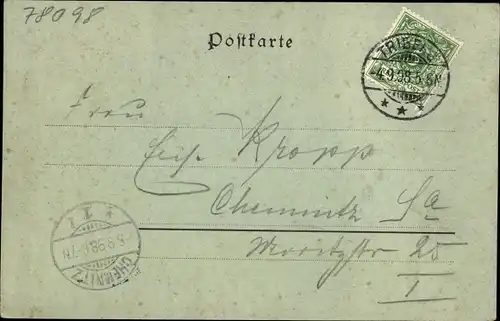 78098
Postkarte
TRIBERG
4.9.98.5-6N
Frau
Kropp
Chemnitz Sa
Moritzstr 25
I
CHEMNITZ
5.9.98.6-7N